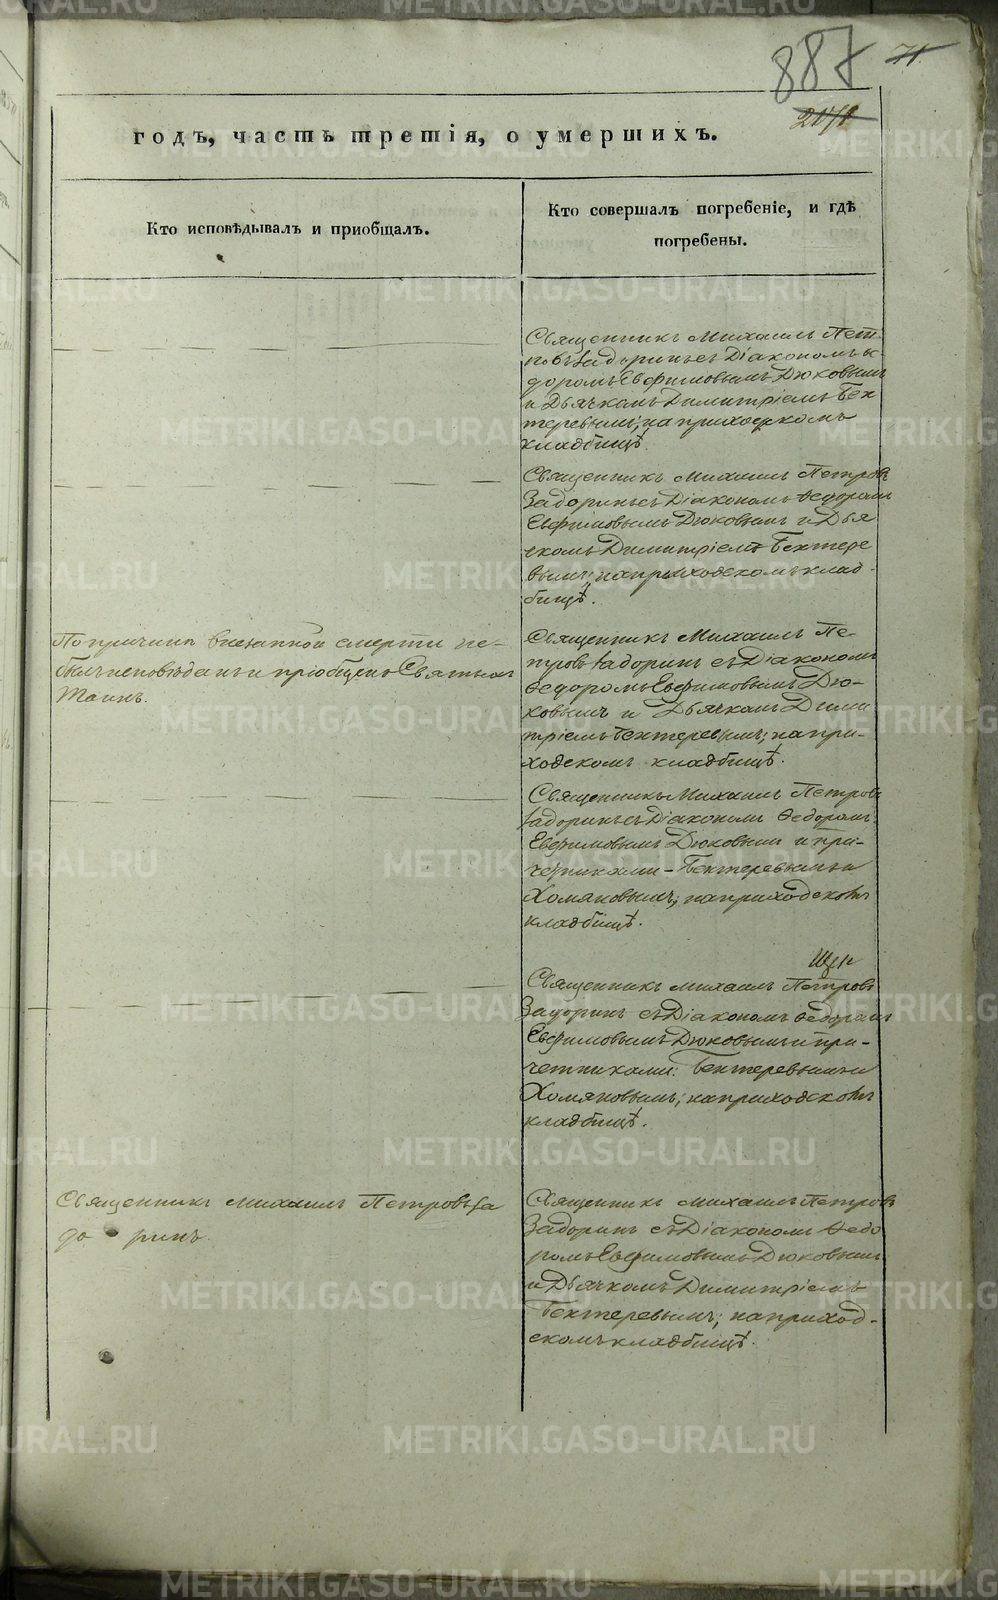 887
71
2171
годъ, часть третія, о умершихъ.
Кто исповѣдывалъ и приобщалъ.
Кто совершалъ погребеніе, и гдѣ
погребены.
Священникъ Михаилъ Пет-
ровъ Задоринъ съ Діакономъ Ѳе-
доромъ Евфимовымъ Дюковымъ
и Дьячкомъ Димитріемъ Бех
теревымъ; на приходскомъ
кладбищѣ.
Священникъ Михаилъ Петровъ
Задоринъ съ Діакономъ Ѳедоромъ
Евфимовымъ Дюковымъ и Дья
чкомъ Димитріемъ Бехтере
вымъ; на приходскомъ клад-
бищѣ.
По причинѣ внезапной смерти не-
былъ исповѣданъ и пріобщенъ Святыхъ
Таинъ.
Священникъ Михаилъ Пе-
тровъ Задоринъ съ Діакономъ
Ѳедоромъ Евфимовымъ Дю-
ковымъ и Дьячкомъ Дими
тріемъ Бехтеревымъ; на при-
ходскомъ кладбищѣ.
Священникъ Михаилъ Петровъ
Задоринъ съ Діакономъ Ѳедоромъ
Евфимовымъ Дюковымъ и при-
четниками - Бехтеревымъ и
Хомяковымъ; на приходскомъ
кладбищѣ.
Священникъ Михаилъ Петровъ
Задоринъ съ Діакономъ Ѳедоромъ
Евфимовымъ Дюковымъ и при-
четниками: Бехтеревымъ и
Хомяковымъ; на приходскомъ
кладбищѣ.
Священникъ Михаилъ Петровъ За
доринъ.
Священникъ Михаилъ Петровъ
Задоринъ съ Діакономъ Ѳедо
ромъ Евфимовымъ Дюковымъ
и Дьячкомъ Димитріемъ
Бехтеревымъ; на приход-
скомъ кладбищѣ.
METRIKI.GASO-URAL.RU